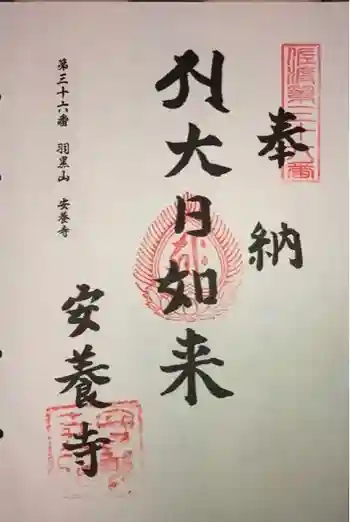 佐渡第三十六番
奉納
大日如来
安養寺
第三十六番 羽黒山 安養寺